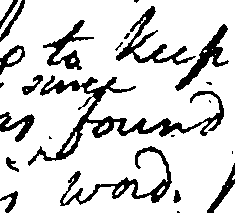 to keep
since
as found
word.